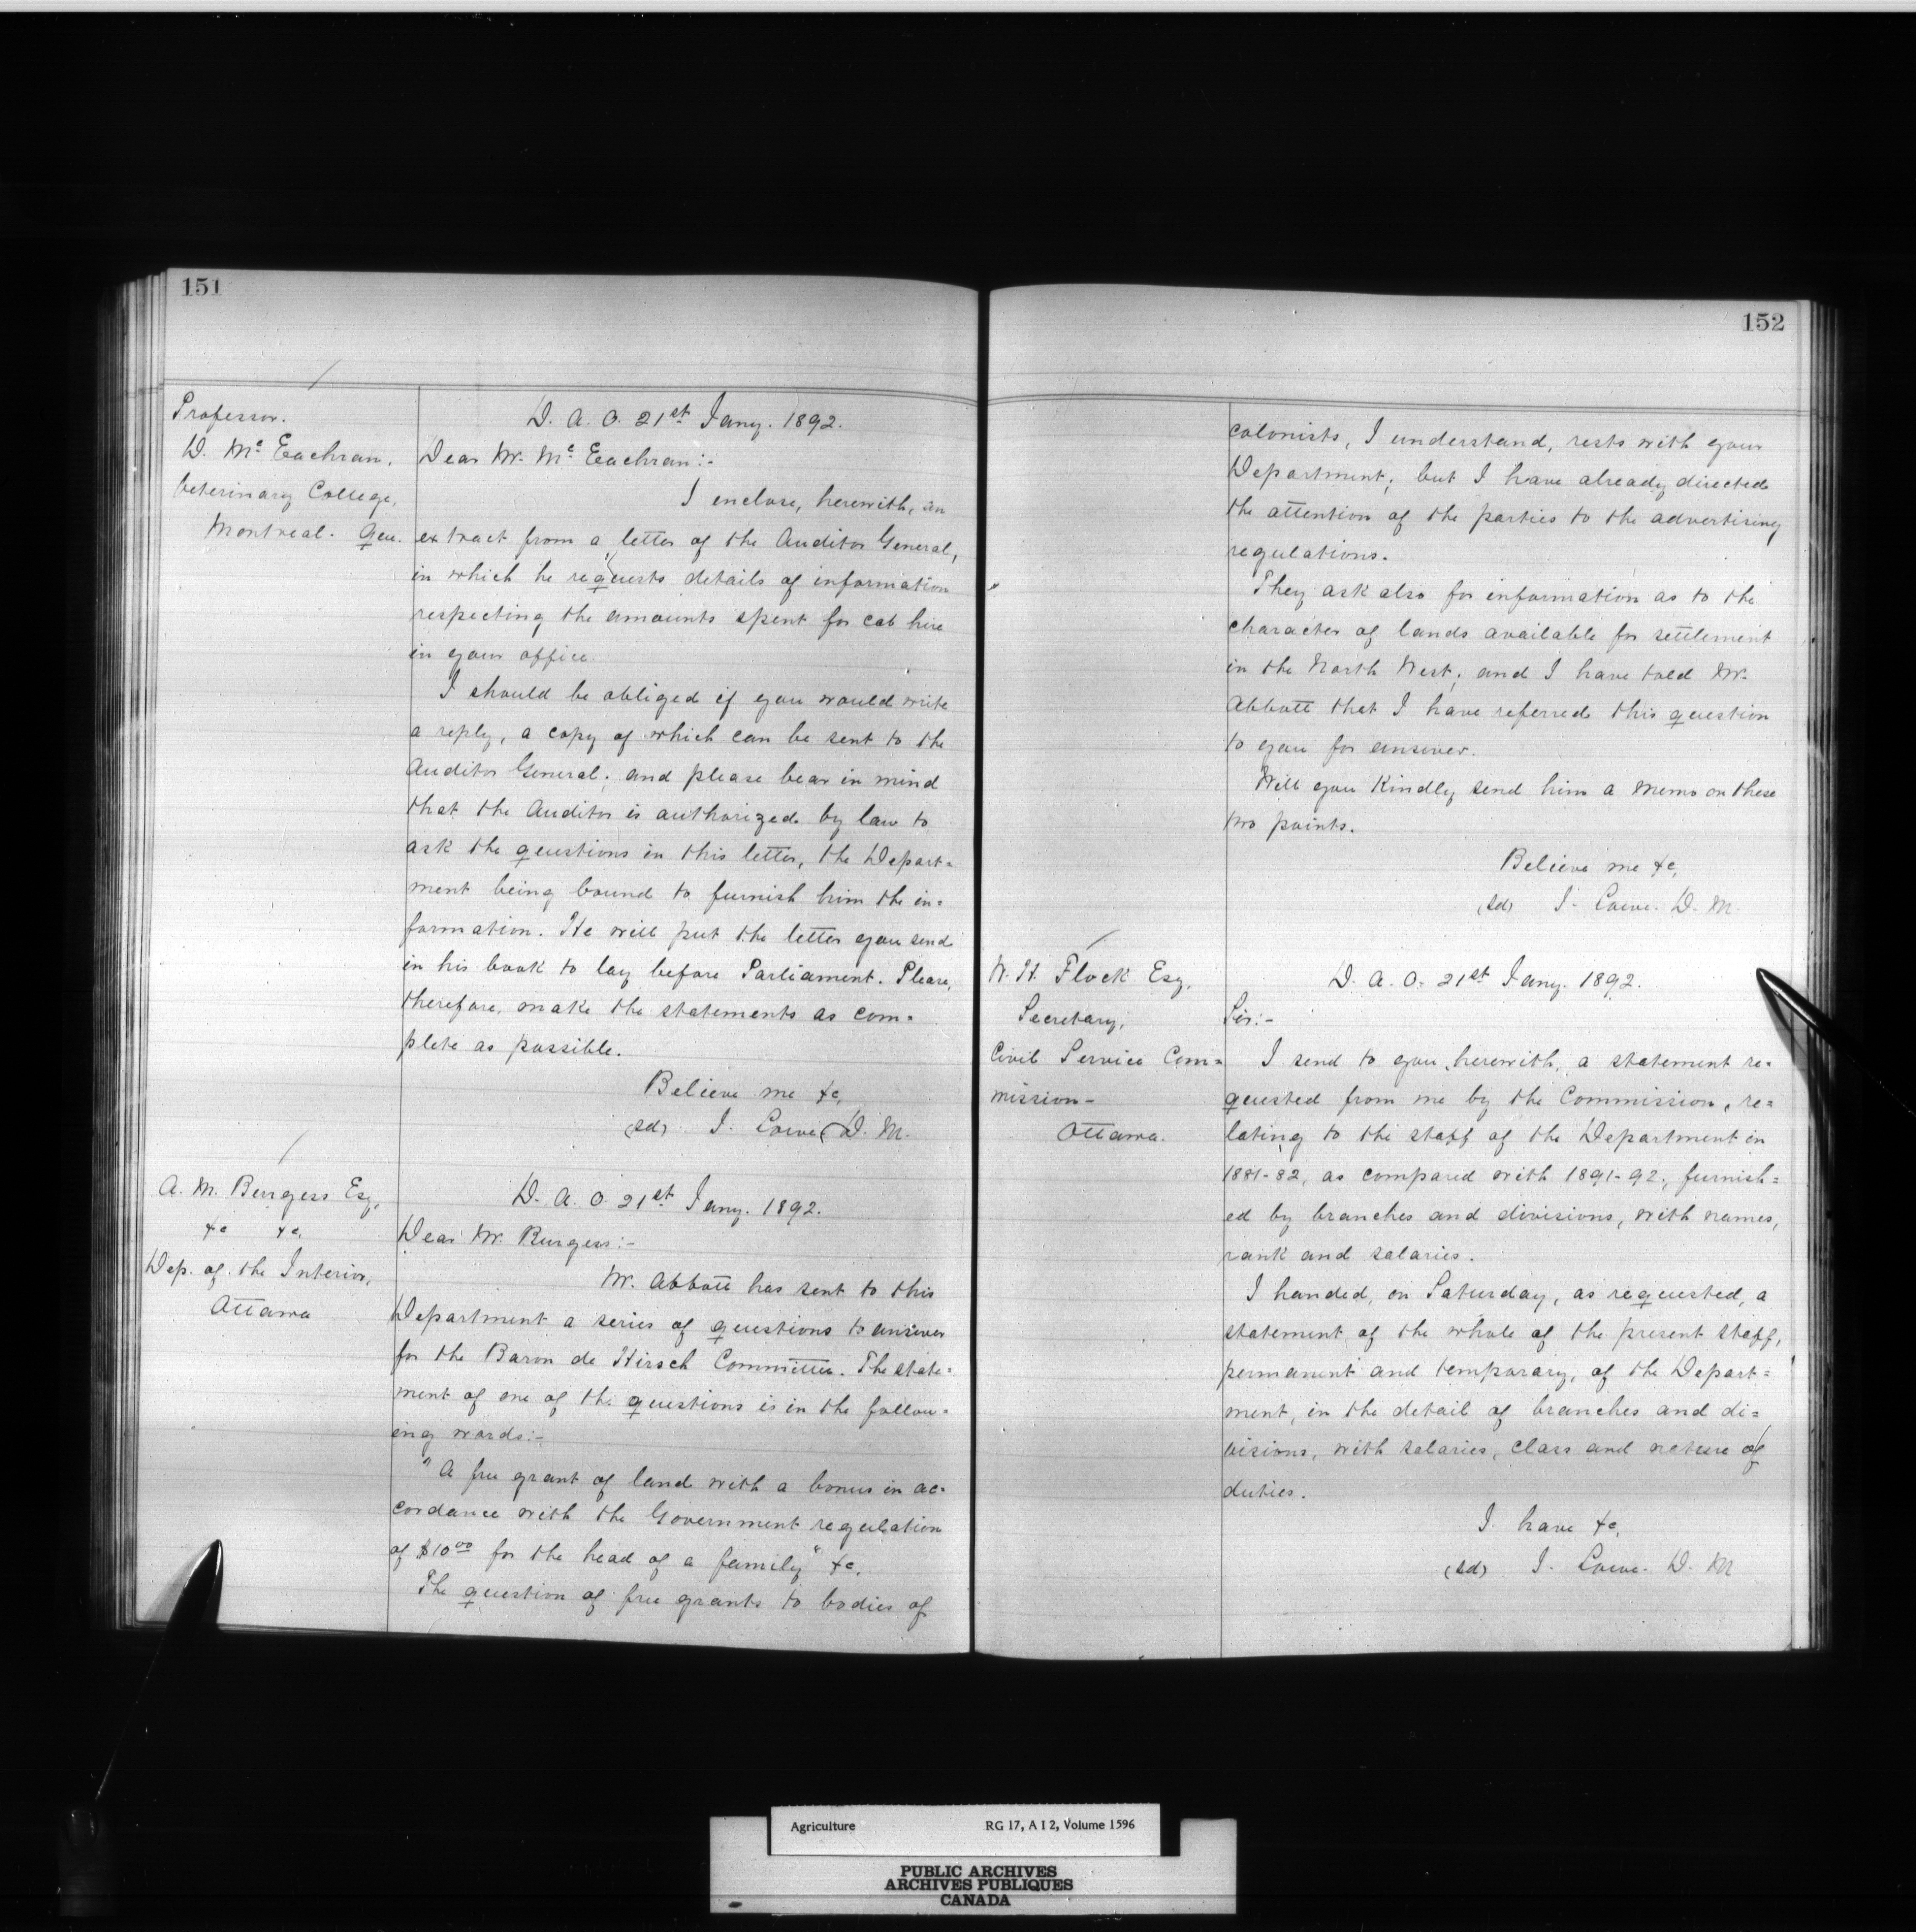 151
Professor.
D. Mc Eachran,
Veterinary College,
Montreal. Que.
D. A. O. 21st Jany. 1892.
Dear Mr. Mc Eachran:-
I enclose, herewith, an
extract from a letter of the Auditor General,
in which he requests details of information
respecting the amounts spent for cab hire
in your office.
I should be obliged if you would write
a reply, a copy of which can be sent to the
Auditor General; and please bear in mind
that the Auditor is authorized by law to
ask the questions in this letter, the Depart=
ment being bound to furnish him the in=
formation. He will put the letter you send
in his book to lay before Parliament. Please,
therefore, make the statements as com=
plete as possible.
Believe me &c,
(sd) J. Lowe D. M.
A. M. Burgess Esq,
&c &c,
Dep. of the Interior,
Ottawa
D. A. O. 21st Jany. 1892.
Dear Mr. Burgess:-
Mr. Abbott has sent to this
Department a series of questions to answer
for the Baron de Hirsch Committee. The state=
ment of one of the questions is in the follow=
ing words:-
"A free grant of land with a bonus in ac=
cordance with the Government regulation
of $10.00 for the head of a family" &c.
The question of free grants to bodies of
152
colonists, I understand, rests with your
Department; but I have already directed
the attention of the parties to the advertising
regulations.
They ask also for information as to the
character of lands available for settlement
in the North West; and I have told Mr.
Abbott that I have referred this question
to you for answer.
Will you Kindly send him a memo on these
two points.
Believe me &c,
(sd) J. Lowe. D. M.
W. H. Flock Esq,
Secretary,
Civil Service Com=
mission-
Ottawa.
D. A. O. 21st Jany. 1892.
Sir:-
I send to you, herewith, a statement re=
quested from me by the Commission, re=
lating to the staff of the Department in
1881-82, as compared with 1891-92, furnish=
ed by branches and divisions, with names,
rank and salaries.
I handed, on Saturday, as requested, a
statement of the whole of the present staff,
permanent and temporary, of the Depart=
ment, in the detail of branches and di=
visions, with salaries, class and nature of
duties.
I have &c,
(sd) J. Lowe. D. M
Agriculture RG 17, A I 2, Volume 1596
PUBLIC ARCHIVES
ARCHIVES PUBLIQUES
CANADA